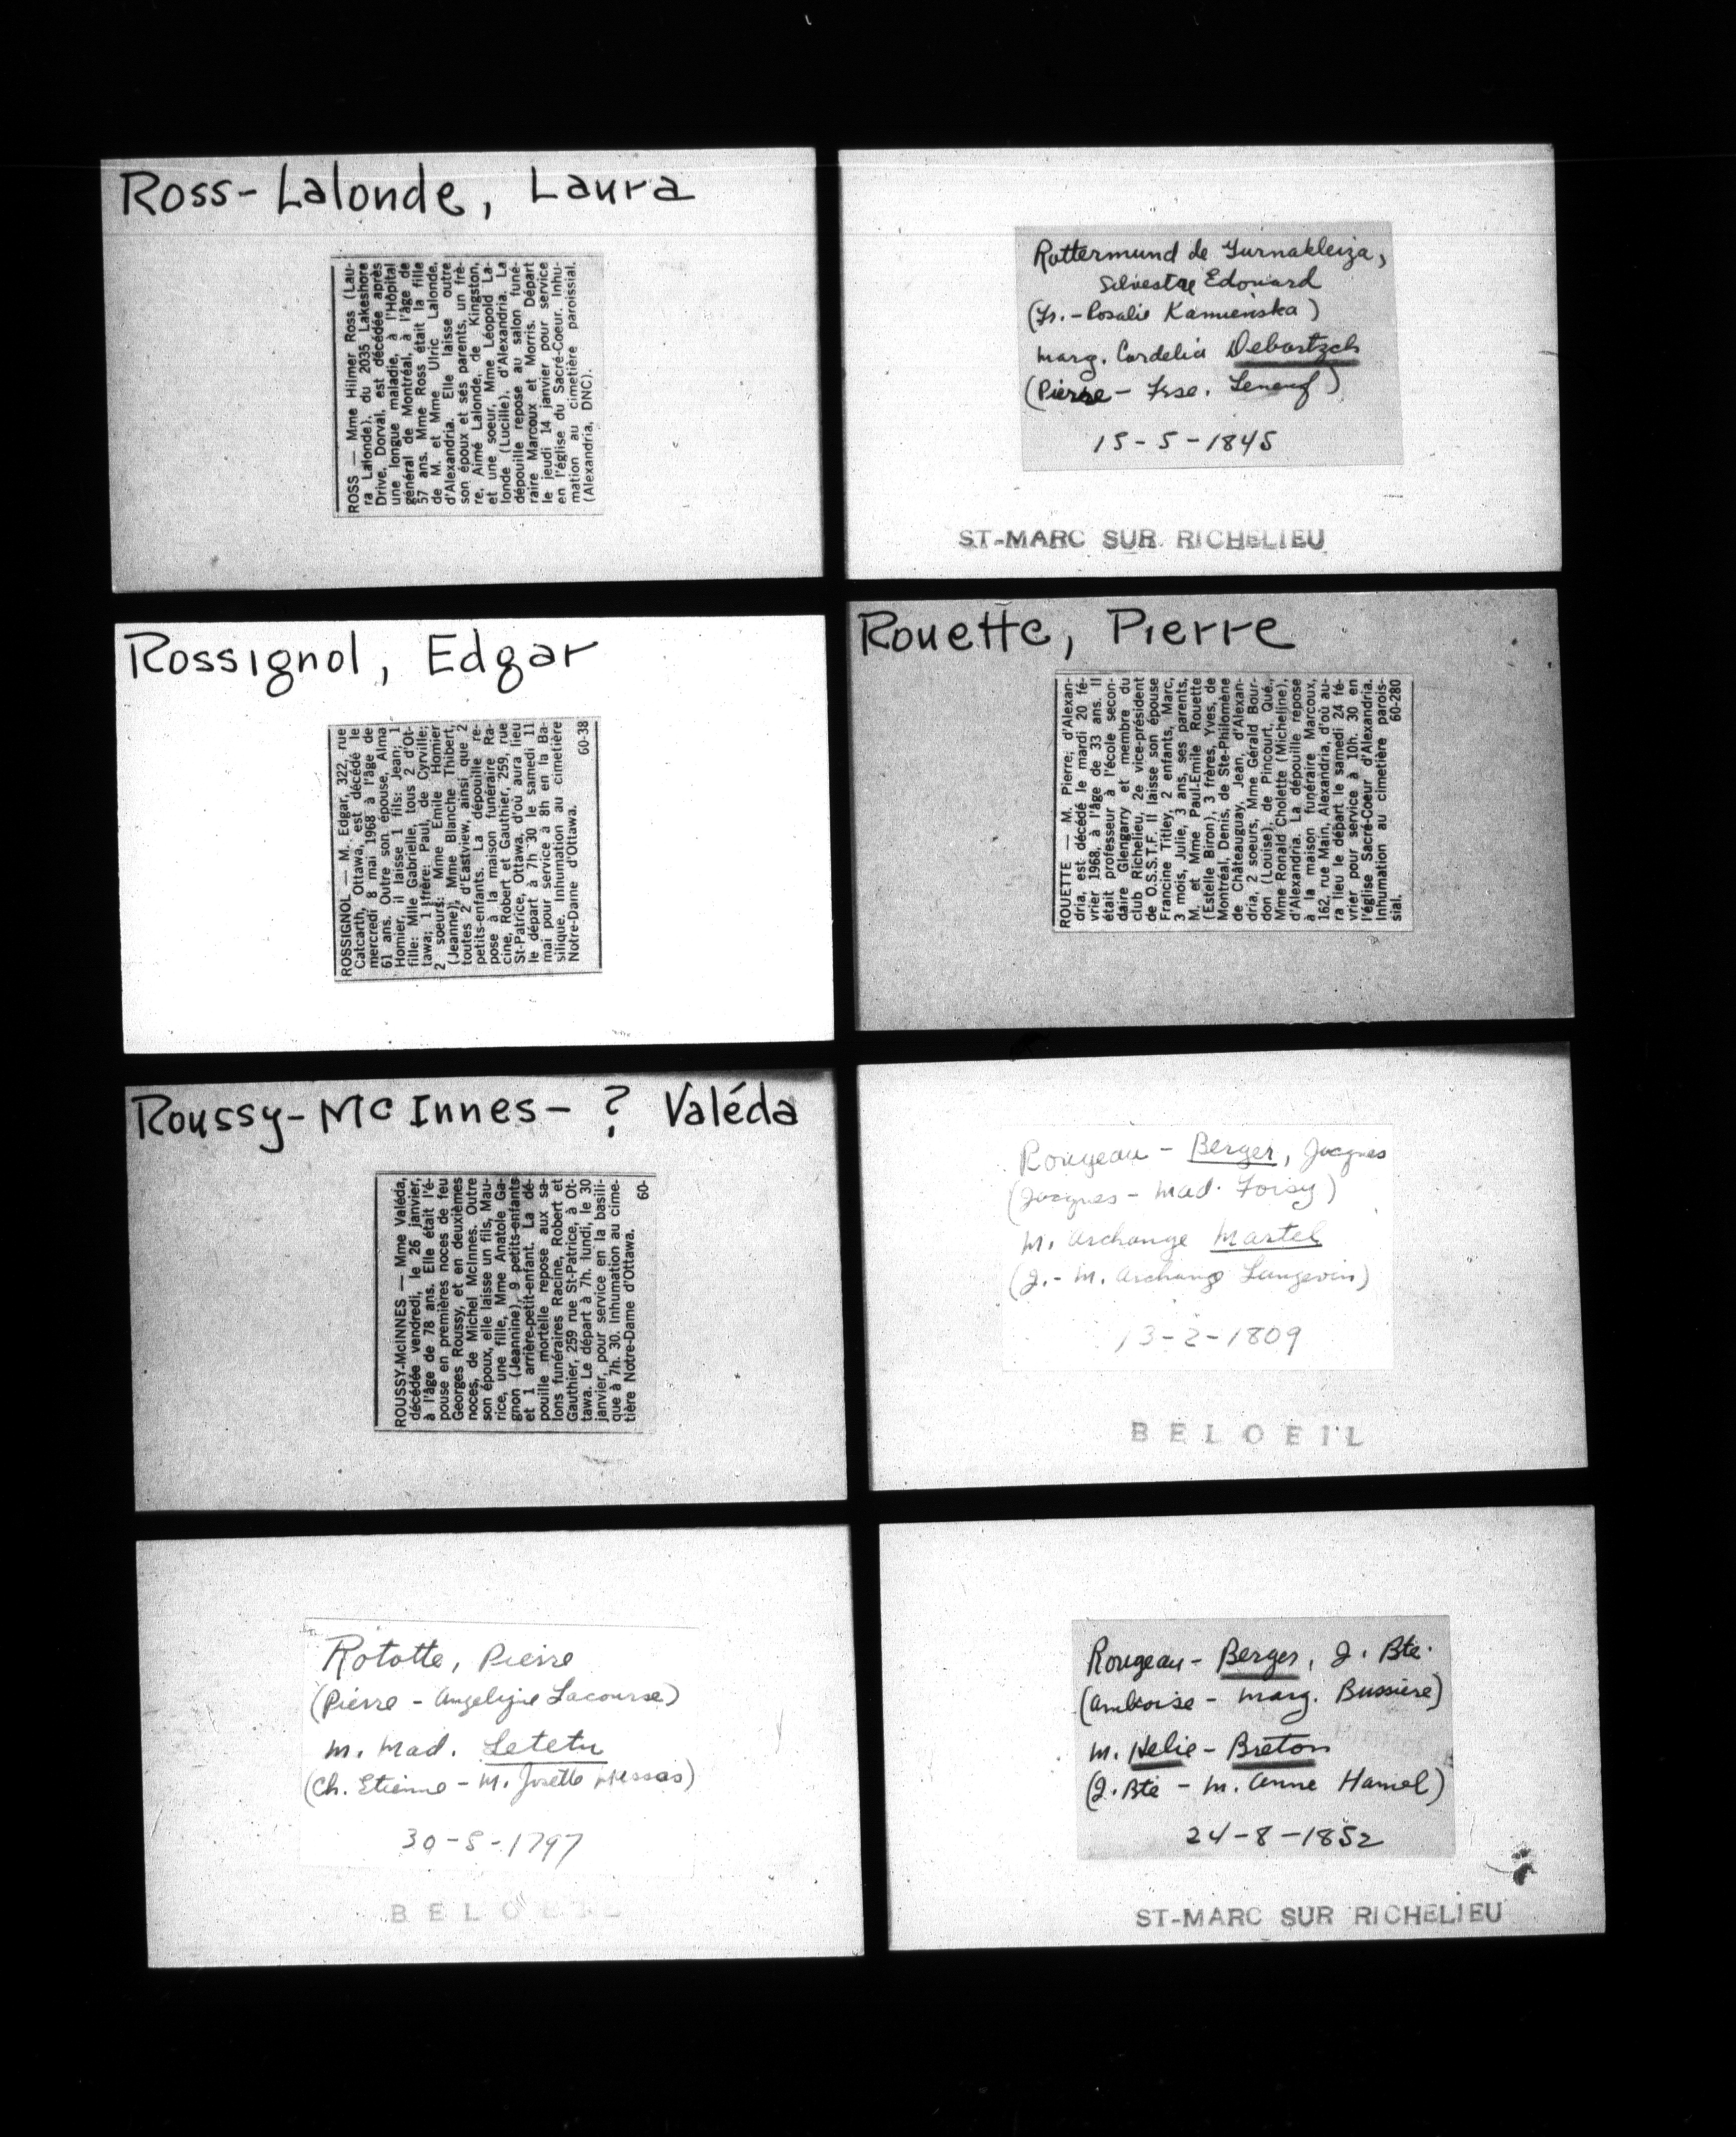 Ross-Lalonde, Laura
ROSS — Mme Hilmer Ross (Lau-
ra Lalonde), du 2035 Lakeshore
Drive, Dorval, est décédée après
une longue maladie, à l'Hôpital
général de Montréal, à l'âge de
57 ans. Mme Ross était la fille
de M. et Mme Ulric Lalonde,
d'Alexandria. Elle laisse outre
son époux et sés parents, un frè-
re, Aimé Lalonde, de Kingston,
et une soeur, Mme Léopold La-
londe (Lucille), d'Alexandria. La
dépouille repose au salon funé-
raire Marcoux et Morris. Départ
le jeudi 14 janvier pour service
en l'église du Sacré-Coeur. Inhu-
mation au cimetière paroissial.
(Alexandria, DNC).
Rottermund de
Silvestre Edouard
(Fr. - Rosalie Kamienska)
marg. Cordelia Debartzch
(Pierre - Frse. Leneuf)
15-5-1845
ST-MARC SUR RICHELIEU
Rossignol, Edgar
ROSSIGNOL — M. Edgar, 322, rue
Catcarth, Ottawa, est décédé le
mercredi 8 mai 1968 à l'âge de
61 ans. Outre son épouse, Alma
Homier, il laisse 1 fils: Jean; 1
fille: Mlle Gabrielle, tous 2 d'Ot-
tawa; 1 frère: Paul, de Cyrville;
2 soeurs: Mme Emile Homier
(Jeanne), Mme Blanche Thibert,
toutes 2 d'Eastview, ainsi que 2
petits-enfants. La dépouille re-
pose à la maison funéraire Ra-
cine, Robert et Gauthier, 259, rue
St-Patrice, Ottawa, d'où aura lieu
le départ à 7h 30 le samedi 11
mai pour service à 8h en la Ba-
silique. Inhumation au cimetière
Notre-Dame d'Ottawa. 60-38
Rouette, Pierre
ROUETTE — M. Pierre, d'Alexan-
dria, est décédé le mardi 20 fé-
vrier 1968, à l'âge de 33 ans. Il
était professeur à l'école secon-
daire Glengarry et membre du
club Richelieu, 2e vice-président
de O.S.S.T.F. Il laisse son épouse
Francine Titley, 2 enfants, Marc,
3 mois, Julie, 3 ans, ses parents,
M. et Mme Paul-Emile Rouette
(Estelle Biron), 3 frères, Yves, de
Montréal, Denis, de Ste-Philomène
de Châteauguay, Jean, d'Alexan-
dria, 2 soeurs, Mme Gérald Bour-
don (Louise), de Pincourt, Qué.,
Mme Ronald Cholette (Micheline),
d'Alexandria. La dépouille repose
à la maison funéraire Marcoux,
162, rue Main, Alexandria, d'où au-
ra lieu le départ le samedi 24 fé-
vrier pour service à 10h. 30 en
l'église Sacré-Coeur d'Alexandria.
Inhumation au cimetière parois-
sial. 60-280
Roussy-McInnes-? Valéda
ROUSSY-McINNES — Mme Valéda,
décédée vendredi, le 26 janvier,
à l'âge de 78 ans. Elle était l'é-
pouse en premières noces de feu
Georges Roussy, et en deuxièmes
noces, de Michel McInnes. Outre
son époux, elle laisse un fils, Mau-
rice, une fille, Mme Anatole Ga-
gnon (Jeannine), 9 petits-enfants
et 1 arrière-petit-enfant. La dé-
pouille mortelle repose aux sa-
lons funéraires Racine, Robert et
Gauthier, 259 rue St-Patrice, à Ot-
tawa. Le départ à 7h. lundi, le 30
janvier, pour service en la basili-
que à 7h. 30. Inhumation au cime-
tière Notre-Dame d'Ottawa. 60-
Rougeau - Berger, Jacques
(Jacques - Mad. Foisy)
M. Archange Martel
(J. - M. Archange Langevin)
13-2-1809
BELOEIL
Rototte, Pierre
(Pierre - Angelique Lacourse)
m. Mad. Letetu
(Ch. Etienne - M. Josette)
30-5-1797
BELOEIL
Rougeau - Berger, J. Bte.
(Ambroise - Marg. Bussière)
m. Helie - Breton
(J. Bte - M. Anne Hamel)
24-8-1852
ST-MARC SUR RICHELIEU